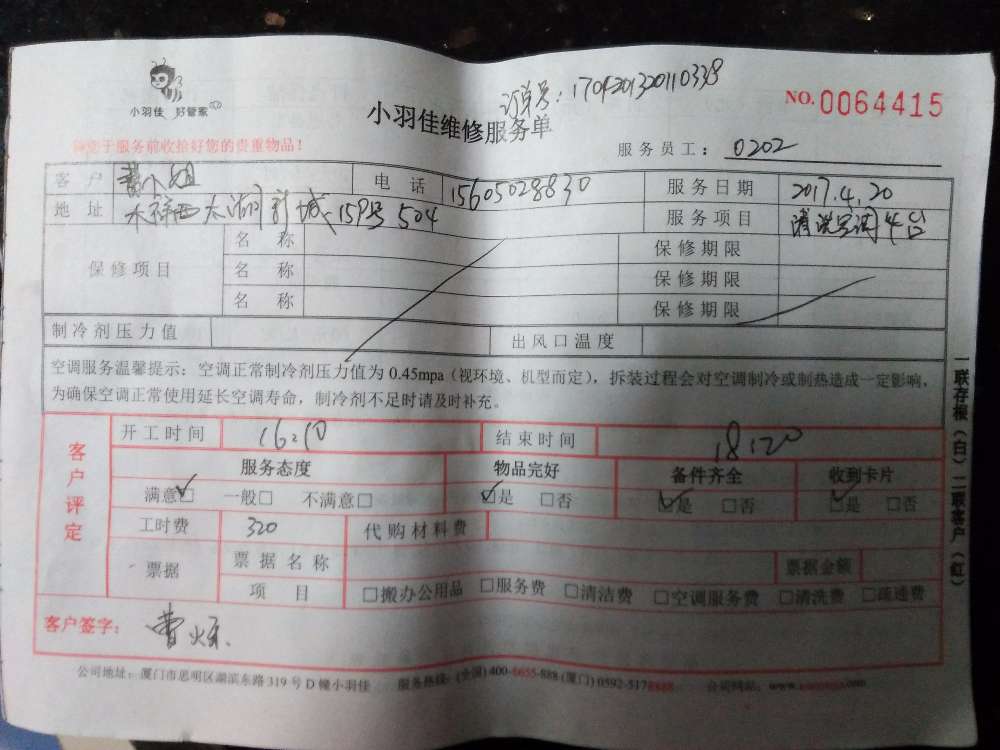 小羽佳 好管家
小羽佳维修服务单
订单号：1704201320110338
NO.0064415
服务前收拾好您的贵重物品！
服务员工：0202
客户 曹小姐 电话 15605028830 服务日期 2017.4.20
地址 水祥西太湖新城159号504 服务项目 清洗空调4台
保修项目
名称 保修期限
名称 保修期限
名称 保修期限
制冷剂压力值 出风口温度
空调服务温馨提示：空调正常制冷剂压力值为 0.45mpa（视环境、机型而定），拆装过程会对空调制冷或制热造成一定影响，
为确保空调正常使用延长空调寿命，制冷剂不足时请及时补充。
客户评定
开工时间 16:10 结束时间 18:20
服务态度 物品完好 备件齐全 收到卡片
满意□ 一般□ 不满意□ □是 □否 □是 □否 □是 □否
工时费 320 代购材料费
票据 票据名称 票据金额
项目 □搬办公用品 □服务费 □清洁费 □空调服务费 □清洗费 □疏通费
客户签字：曹
公司地址：厦门市思明区湖滨东路 319 号 D 幢小羽佳 服务热线：(全国) 400-6655-888 (厦门) 0592-5178888 公司网站：www.
一联存根（白）二联客户（红）